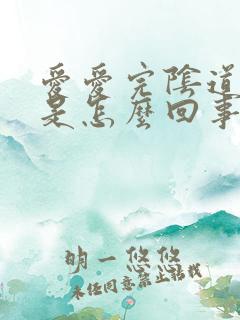 愛愛完陰道
是怎麼回事
明一悠悠
未经同意禁止转载